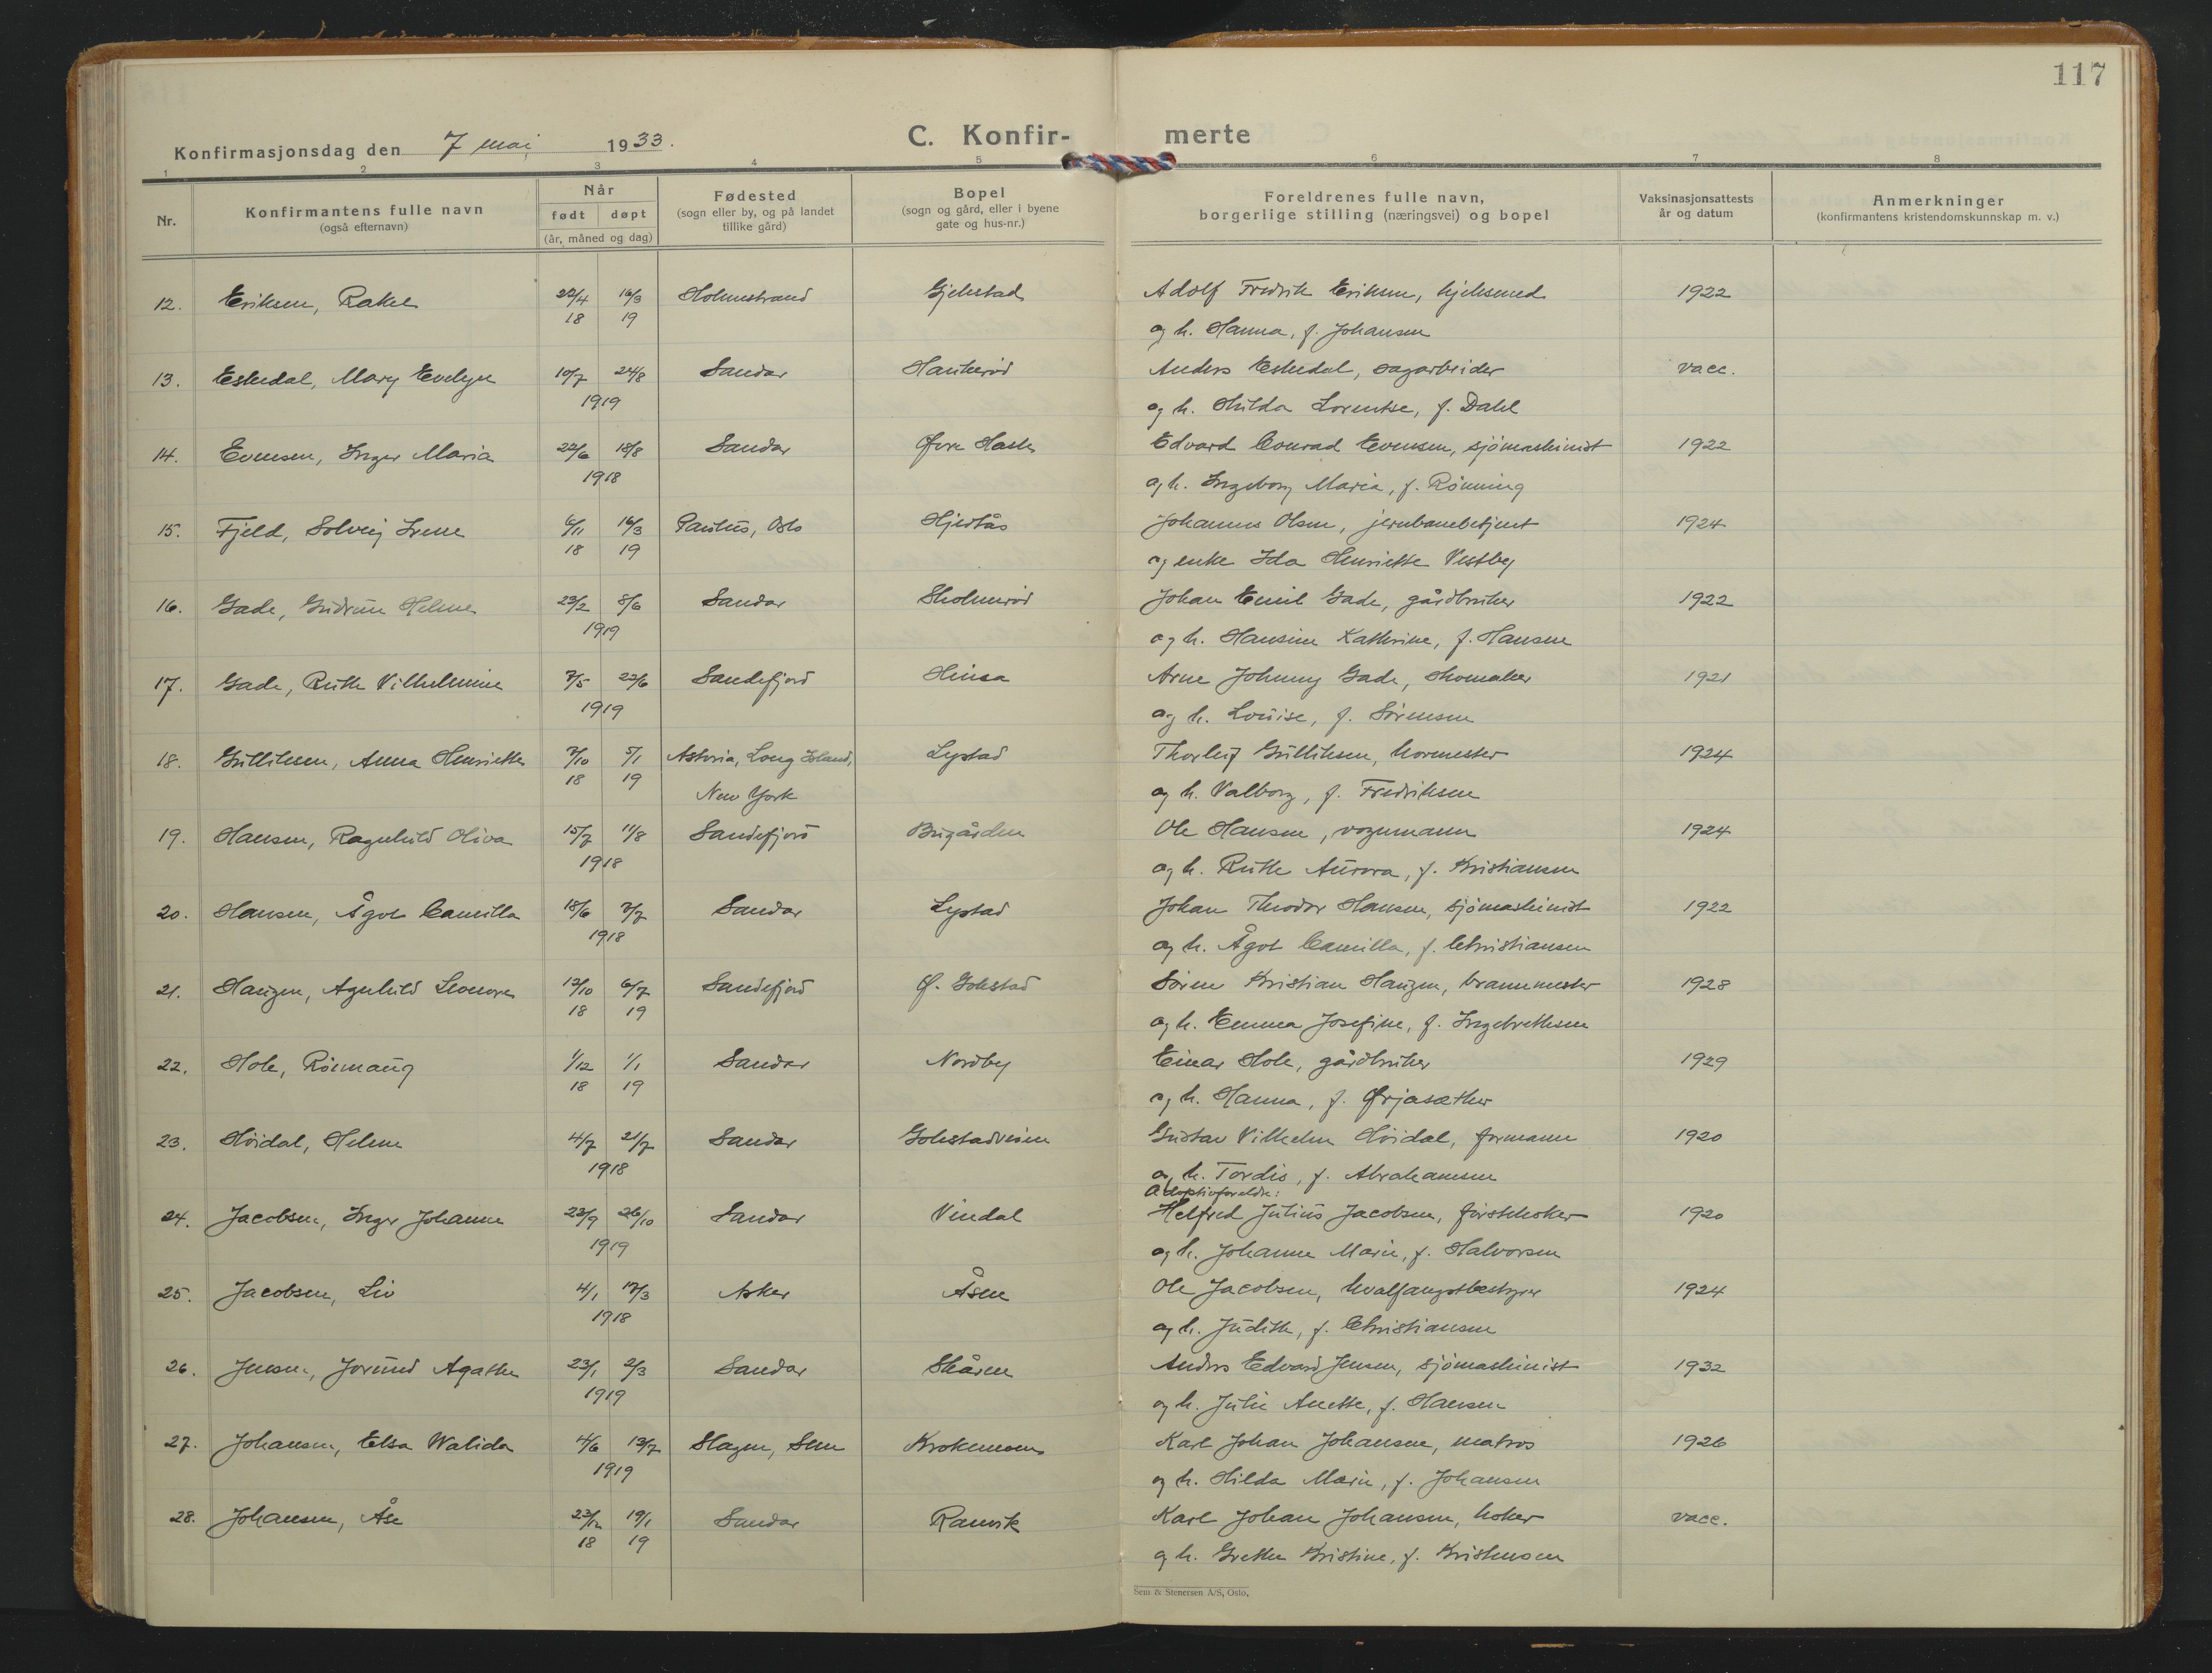 117
Konfirmasjonsdag den 7 mai 1933.
C. Konfir- merte
1 2 3 4 5 6 7 8
Nr.
Konfirmantens fulle navn
(også efternavn)
Når
født døpt
(år, måned og dag)
Fødested
(sogn eller by, og på landet
tillike gård)
Bopel
(sogn og gård, eller i byene
gate og hus-nr.)
Foreldrenes fulle navn,
borgerlige stilling (næringsvei) og bopel
Vaksinasjonsattests
år og datum
Anmerkninger
(konfirmantens kristendomskunnskap m. v.)
12. Eriksen, Rakel 22/4 16/3 Holmestrand Gjekstad Adolf Fredrik Eriksen, kjelsmed 1922
18 19 og h. Hanna, f. Johansen
13. Eskedal, Mary Evelyn 10/7 24/8 Sandar Haukerød Anders Eskedal, sagarbeider vacc.
1919 og h. Hilda Lorentse, f. Dahl
14. Evensen, Inger Maria 22/6 18/8 Sandar Øvre Hasle Edvard Conrad Evensen, sjömaskinist 1922
1918 og h. Ingeborg Maria, f. Rönning
15. Fjeld, Solveig Irene 6/11 16/3 Paulus, Oslo Hjertås Johannes Olsen, jernbanebetjent 1924
18 19 og enke Ida Henriette Vestby
16. Gade, Gudrun Helene 23/2 8/6 Sandar Skolmerød Johan Emil Gade, gårdbruker 1922
1919 og h. Hansine Kathrine, f. Hansen
17. Gade, Ruth Vilhelmine 7/5 22/6 Sandefjord Huisa Arne Johnny Gade, skomaker 1921
1919 og h. Louise, f. Sörensen
18. Gulliksen, Anna Henriette 7/10 5/1 Astoria, Long Island, Lystad Thorleif Gulliksen, kormester 1924
18 19 New York og h. Valborg, f. Fredriksen
19. Hansen, Ragnhild Oliva 15/7 11/8 Sandefjord Bugården Ole Hansen, vognmann 1924
1918 og h. Ruth Aurora, f. Kristiansen
20. Hansen, Ågot Camilla 18/6 7/7 Sandar Lystad Johan Theodor Hansen, sjömaskinist 1922
1918 og h. Ågot Camilla, f. Christiansen
21. Haugen, Agnhild Leonore 13/10 6/7 Sandefjord Ø. Gokstad Sören Kristian Haugen, brannmester 1928
18 19 og h. Emma Josefine, f. Ingebrethsen
22. Hole, Römaug 1/12 1/1 Sandar Nordby Einar Hole, gårdbruker 1929
18 19 og h. Hanna, f. Ørjasæther
23. Höidal, Helene 4/7 21/7 Sandar Gokstadveien Gustav Vilhelm Höidal, formann 1920
1918 og h. Tordis, f. Abrahamsen
Adoptivforeldre:
24. Jacobsen, Inger Johanne 23/9 26/10 Sandar Vindal Helfred Julius Jacobsen, förstekoker 1920
1919 og h. Johanne Marie, f. Halvorsen
25. Jacobsen, Liv 4/1 17/3 Asker Åsen Ole Jacobsen, hvalfangstbestyrer 1924
1918 og h. Judith, f. Christiansen
26. Jensen, Jorund Agathe 23/1 2/3 Sandar Skåren Anders Edvard Jensen, sjömaskinist 1932
1919 og h. Julie Anette, f. Hansen
27. Johansen, Elsa Walida 4/6 13/7 Slagen, Sem Krokemoen Karl Johan Johansen, matros 1926
1919 og h. Hilda Marie, f. Johansen
28. Johansen, Åse 23/12 19/1 Sandar Ranvik Karl Johan Johansen, koker vacc.
18 19 og h. Grethe Kristine, f. Kristensen
Sem & Stenersen A/S, Oslo.